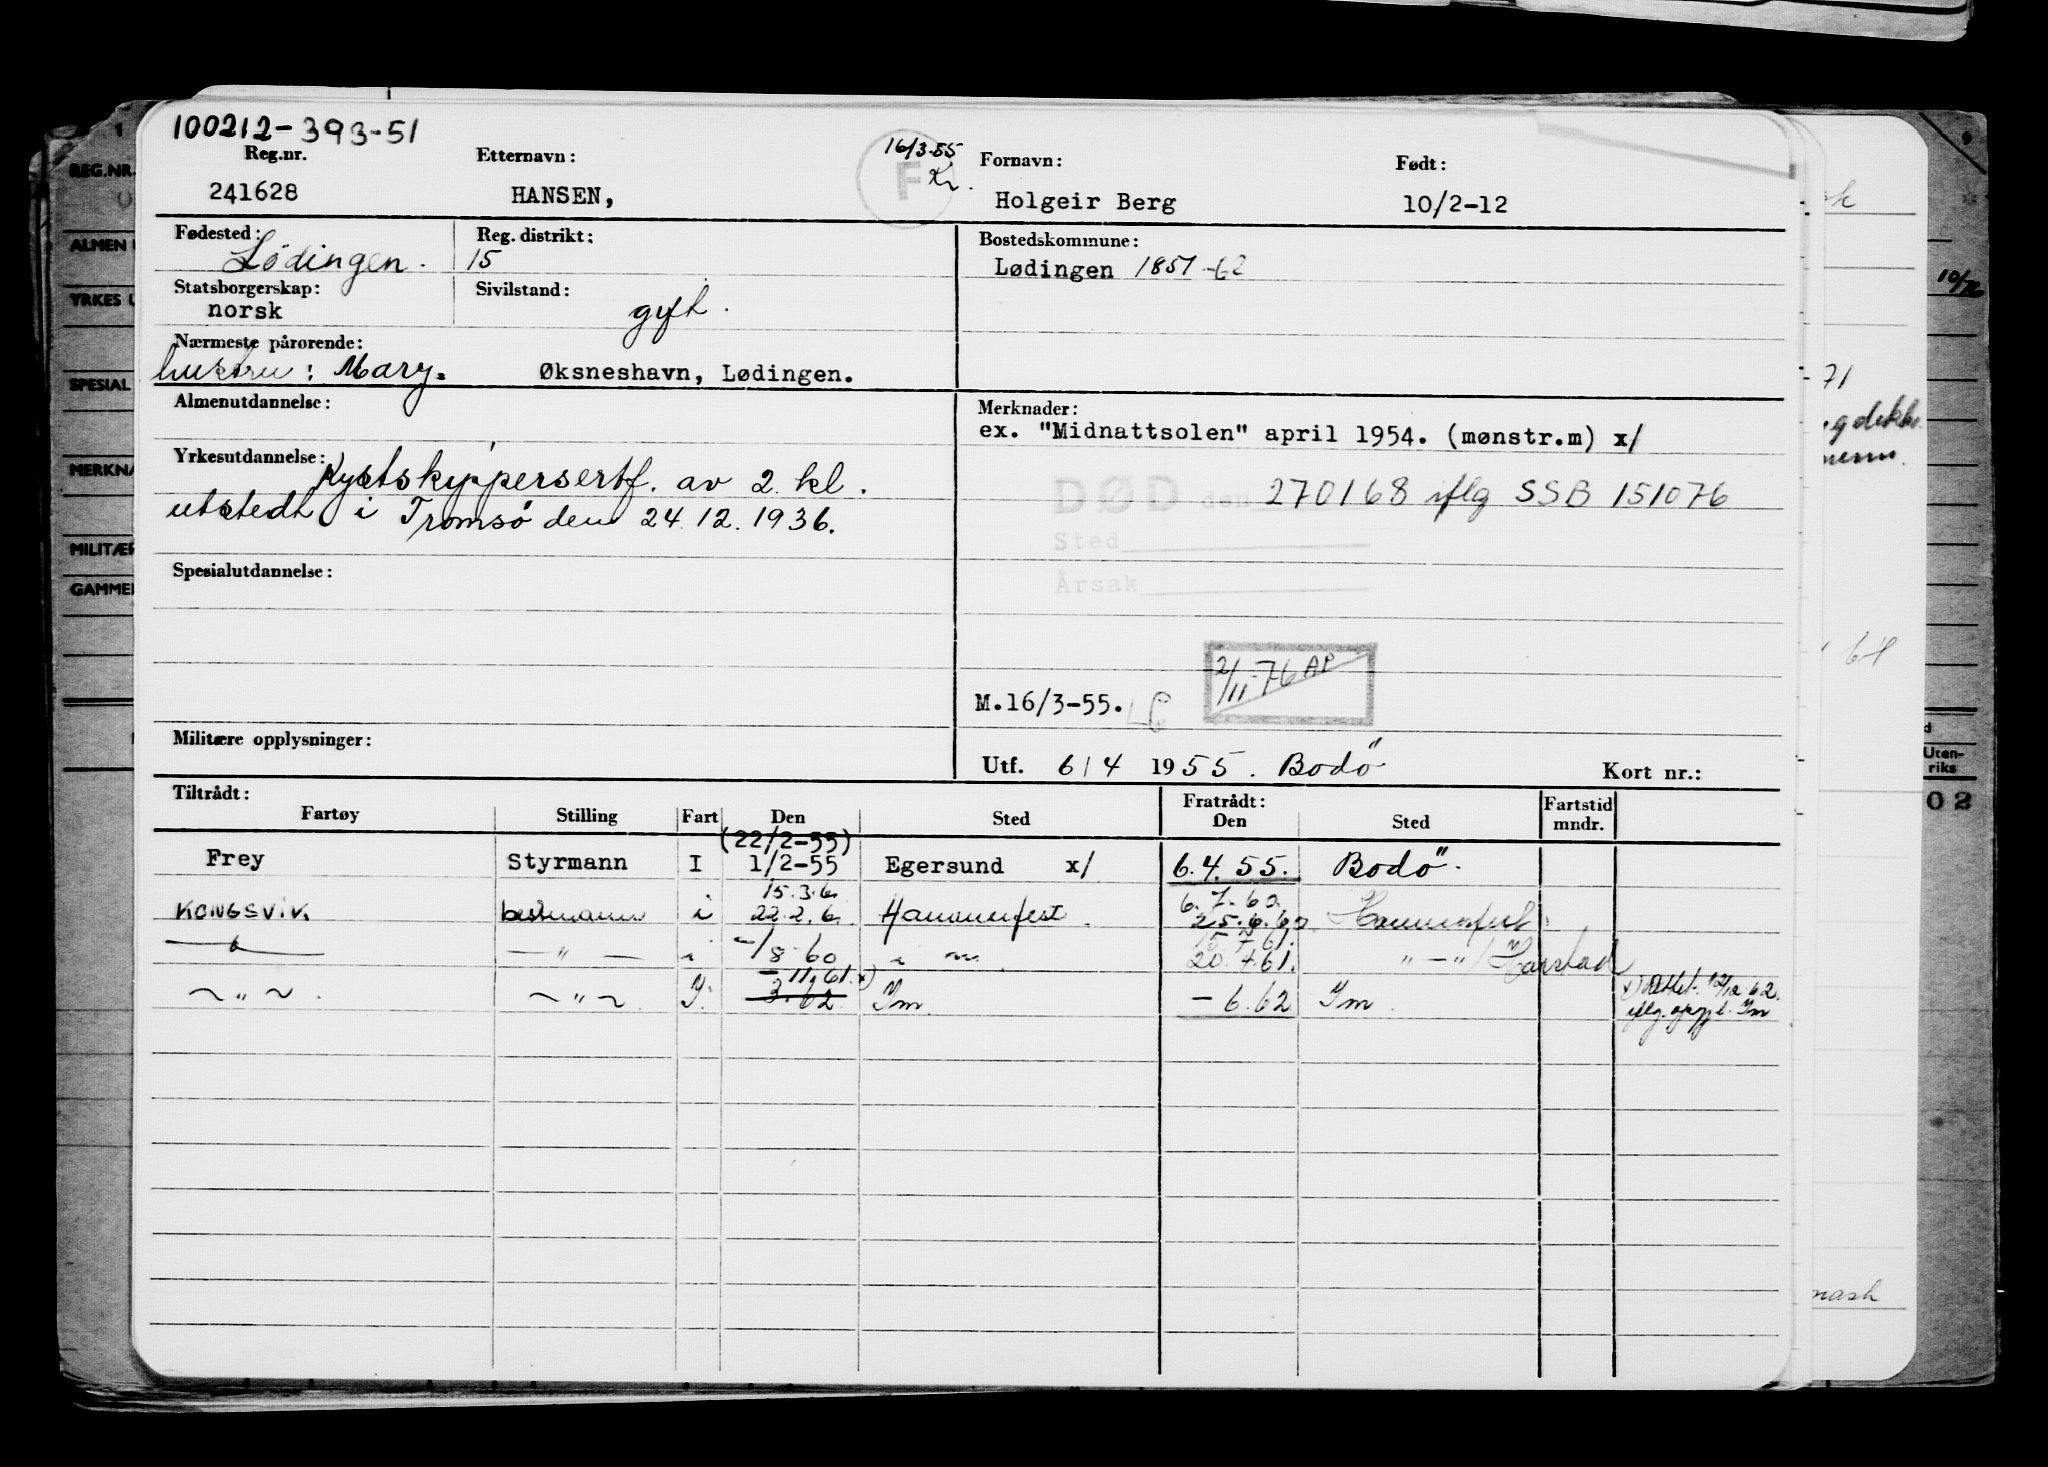 100212-393-51
Reg.nr. Etternavn: 16/3-55 Fornavn: Født:
241628 HANSEN, F Kr. Holgeir Berg 10/2-12
Fødested: Reg. distrikt: Bostedskommune:
Lødingen. 15 Lødingen 1851-62
Statsborgerskap: Sivilstand:
norsk gift.
Nærmeste pårørende:
hustru: Mary. Øksneshavn, Lødingen.
Almenutdannelse: Merknader:
ex. "Midnattsolen" april 1954. (mønstr.m) x/
Yrkesutdannelse: Kystskippersertf. av 2. kl.
utstedt i Tromsø den 24.12.1936.
DØD den 270168 iflg SSB 151076
Sted
Årsak
Spesialutdannelse:
2/11-76 AP
M.16/3-55.
Militære opplysninger:
Utf. 6/4 1955. Bodö Kort nr.:
Tiltrådt: Fratrådt: Fartstid
Fartøy Stilling Fart Den Sted Den Sted mndr.
(22/2-55)
Frey Styrmann I 1/2-55 Egersund x/ 6.4.55. Bodö.
15.3.6 6.7.60
KONGSVIK bestmann i 22.2.6 Hammerfest 25.6.60 Hammerfest.
—"— —"— i -/8-60 20.4.61. "—"/Harstad
- 11.61. x)
~"~. ~"~. I. 3.62 Im. - 6.62 Im.
x) Rettet 12/12.62.
iflg. oppg f. Im
REG.NR.
ALMEN
YRKES U
SPESIAL
MERKNA
MILITÆR
GAMMEL
9
10/76
71
64
Uten-
riks
02
mash